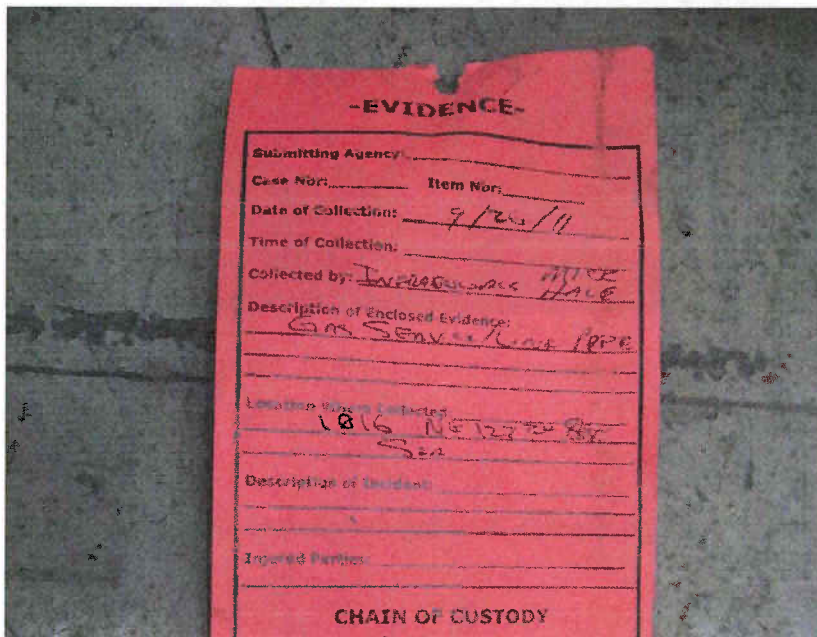 -EVIDENCE-
Submitting Agency:
Case Nbr: Item Nbr:
Date of Collection: 9/26/11
Time of Collection:
Collected by: MIKE
HALE
Description of Enclosed Evidence:
GAS SERVICE LINE PIPE
Location Where Collected:
1816 NE
Description of Incident:
Injured Parties:
CHAIN OF CUSTODY